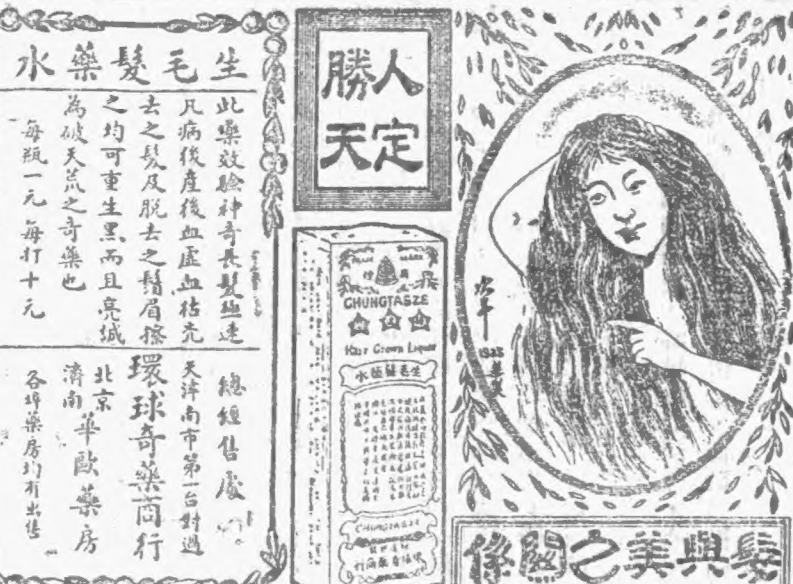 生毛髮藥水
此藥效驗神奇長髮極速
凡病後產後血虛血枯禿
去之髮及脫去之鬚眉擦
之均可重生黑而且亮誠
為破天荒之奇藥也
每瓶一元 每打十元
總經售處
天津南市第一台對過
環球奇藥商行
北京
濟南
華歐藥房
各埠藥房均有出售
人定
勝天
CHUNGTASZE
Hair Grown Liquor
生毛髮藥水
CHUNGTASZE
1928
髮與美之關係